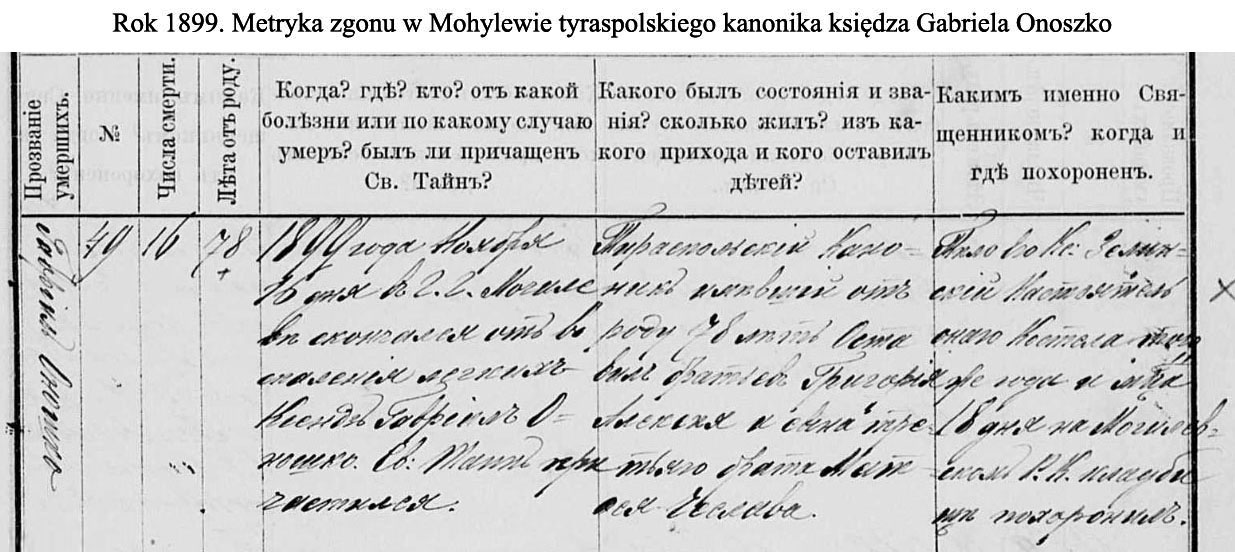 Rok 1899. Metryka zgonu w Mohylewie tyraspolskiego kanonika księdza Gabriela Onoszko
Прозваніе
умершихъ.
№
Числа смерти.
Лѣта отъ роду.
Когда? гдѣ? кто? отъ какой
болѣзни или по какому случаю
умеръ? былъ ли причащенъ
Св. Тайнъ?
Какого былъ состоянія и зва-
нія? сколько жилъ? изъ ка-
кого прихода и кого оставилъ
дѣтей?
Какимъ именно Свя-
щенникомъ? когда и
гдѣ похороненъ.
Гавріилъ Оношко
49
16
78
+
1899 года Ноября
16 дня въ г. г. Могиле
вѣ скончался отъ во
спаленія легкихъ
Ксендзъ Гавріилъ О=
ношко. Св. Таинъ при
частился.
Тираспольскій Кано=
никъ имѣвшій отъ
роду 78 лѣтъ Оста
вилъ братьевъ Григорія
Алексѣя и сына тре=
тьяго брата Мат=
ѳея Чеслава.
Тѣло его Кс: Зелин=
скій Настоятель
снаго Костела того
же года и м-ца
18 дня на Могилев=
скомъ Р. К. кладби
щѣ похоронилъ.